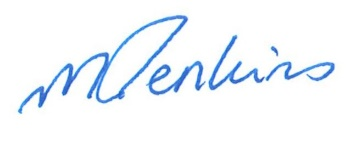 M Jenkins